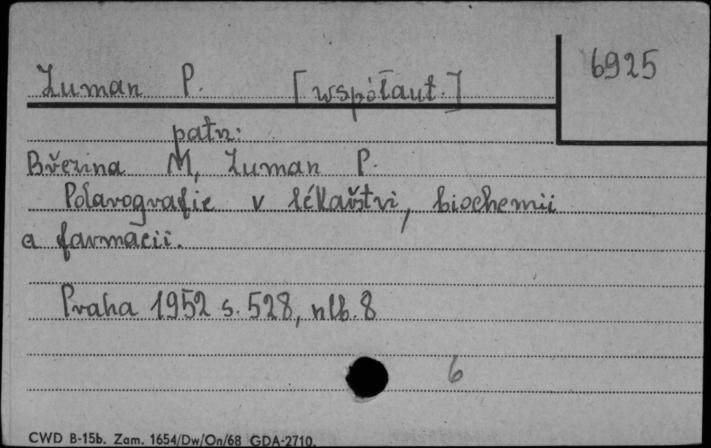 Zuman P. [współaut.]
6925
patrz:
Březina M, Zuman P.
Polarografie v lékařství, biochemii
a farmacii.
Praha 1952 s. 528, nlb. 8
6
CWD B-15b. Zam. 1654/Dw/On/68 GDA-2710.